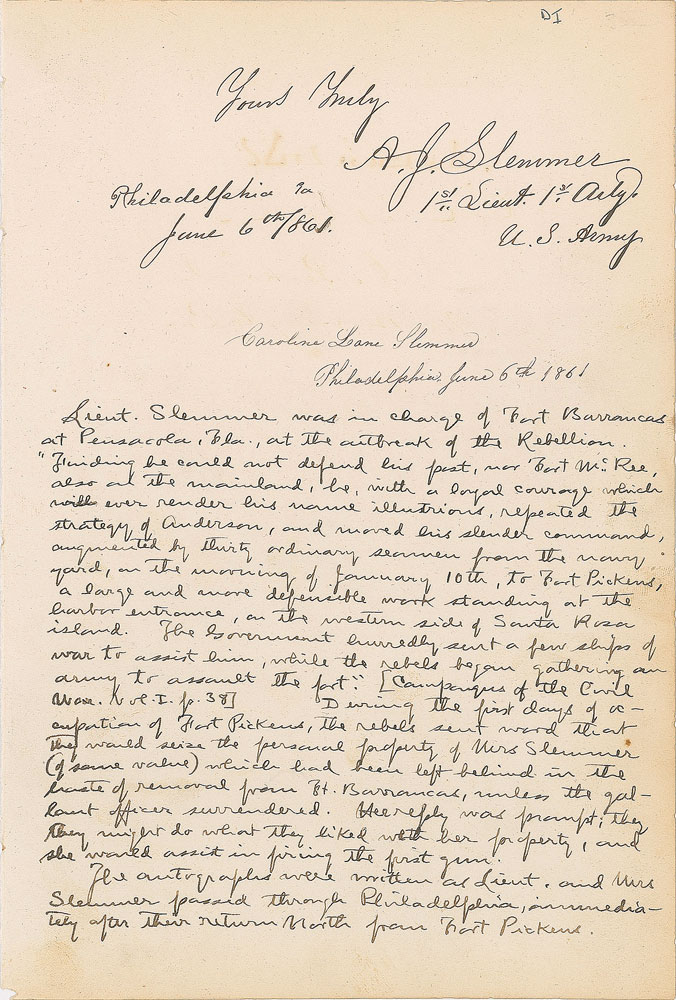 DI
Yours Truly
A. J. Slemmer
1st Lieut. 1st Arty.
U. S. Army
Philadelphia Pa
June 6th/861.
Caroline Lane Slemmer
Philadelphia, June 6th 1861
Lieut. Slemmer was in charge of Fort Barrancas
at Pensacola, Fla., at the outbreak of the Rebellion.
"Finding he could not defend his post, nor Fort Mc.Ree,
also on the mainland, he, with a loyal courage which
will ever render his name illustrious, repeated the
strategy of Anderson, and moved his slender command,
augmented by thirty ordinary seamen from the navy
yard, on the morning of January 10th, to Fort Pickens,
a large and more defensible work standing at the
harbor entrance, on the western side of Santa Rosa
island. The Government hurredly sent a few ships of
war to assist him, while the rebels began gathering an
army to assault the fort." [Campaigns of the Civil
War. Vol. I. p. 38] During the first days of oc-
cupation of Fort Pickens, the rebels sent word that
they would seize the personal property of Mrs Slemmer
(of some value) which had been left behind in the
haste of removal from Ft. Barrancas, unless the gal-
lant officer surrendered. Her reply was prompt; they
they might do what they liked with her property, and
she would assist in firing the first gun.
The autographs were written as Lieut. and Mrs
Slemmer passed through Philadelphia, immedia-
tely after their return North from Fort Pickens.